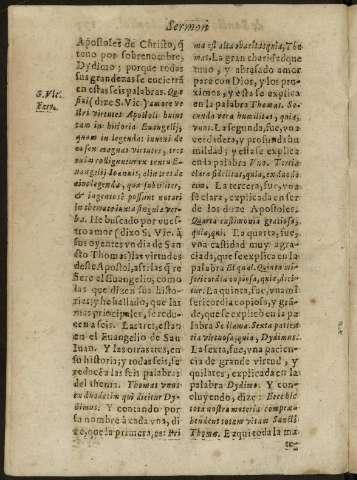 Sermon
Apostoles de Christo, q̃
teno por sobrenombre,
Dydimo; porque todas
sus grandezas se encierrã
en estas seis palabras.
(dize S. Vic.) amore ve
stri virtutes Apostoli
zam in historia Euangelij,
quam in legenda:
eo sex magnas virtutes, tres
enim colliguntur ex textu E-
uangelij Ioannis, alie tres de
eius legenda, que subtiliter,
& ingeniose possunt notari
in themate iuxta singula ver-
ba. He buscado por vues-
tro amor (dixo S. Vic. à
sus oyentes vn dia de San-
cto Thomas) las virtudes
deste Apostol, assi las q̃ re
fiere el Euangelio, como
las que dizen sus histo-
rias; y he hallado, que las
mas principales, se redu-
cen a seis. Las tres, estan
en el Euangelio de San
Iuan. Y las otras tres, en
su historia; y todas seis, se
reducẽ a las seis palabras
del thema. Thomas vnus
ex duodecim qui dicitur Dy-
dimus. Y contando por
su nombre à cada vna, di
ze, que la primera, es: Pri
S. Vic.
ma est alta charitas quia, Tho
mas. La gran charidad que
tuuo, y abrasado amor
para con Dios, y los pro-
ximos, y esta se explica
en la palabra Thomas. Se-
cunda vera humilitas, quia,
vnus. La segunda, fue, vna
verdadera, y profunda hu
mildad; y esta se explica
en la palabra Vno. Tertia
clara fidelitas, quia, ex duode
cim. La tercera, fue, vna
fè clara, explicada en ser
de los doze Apostoles.
Quarta castimonia gratiosa,
quia, qui. La quarta, fue,
vna castidad muy agra-
ciada, que se explica en la
palabra El qual. Quinta mi-
sericordia copiosa, quia, dici-
tur. La quinta, fue, vna mi
sericordia copiosa, y grã-
de, que se explica en la pa
labra Se llama. Sexta patien-
tia virtuosa, quia, Dydimus.
La sexta, fue, vna pacien-
cia de grande virtud, y
quilates, explicada en la
palabra Dydimo. Y con-
cluyendo, dize: Ecce hic
tota nostra materia compræ-
hendens totam vitam Sancti
Thomæ. Ex qui toda la ma-